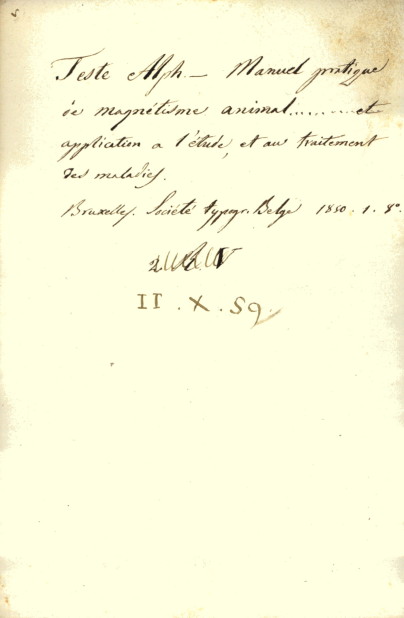 Teste Alph. — Manuel pratique
de magnétisme animal............et
application a l'étude, et au traitement
des maladies.
Bruxelles. Société typogr. Belge 1850. 1. 8°.
II . X . 59